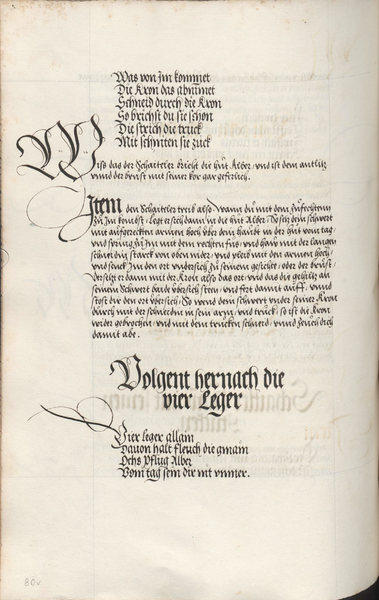 Was von Im kommet
Die Kron das abnimet
Schneid durch die Kron
So brichst du sie schon
Die strich die truck
Mit schniten sie zuck
Wiß das der Schaitteler bricht die hut Alber, vnd ist dem antlitz
vnnd der brust mit seiner kor gar geferlich.
Item den Schaitteler treib also, wann du mit dem zufechten
zu Im kombst, legt er sich dann in die hut Alber, So setz dein schwert
mit aufgereckten armen hoch vber dein haubt in der hut vom tag
vnd spring zu Im mit dem rechten fus, vnd haw mit der langen
schneid starck von oben nider, vnd pleib mit den armen hoch,
vnd senck Im den ort vndersich zu seinem gesichte, oder der brust,
Versetzt er dann mit der Kron also das ort vnd das die gehiltz an
seinem Schwert baide vbersich steen, vnd fert damit auff, vnnd
stost dir den ort vbersich, So wend dein schwert vnder seiner Kron
durch mit der schneiden in sein arm, vnd truck, so ist die kron
wider gebrochen, vnd mit dem trucken schneid, vnnd zeuch dich
damit abe.
Volgent hernach die
vier Leger
Vier leger allain
Dauon halt fleuch die gmain
Ochs Pflug Alber
Vom tag sein dir nit vnmer.
80v